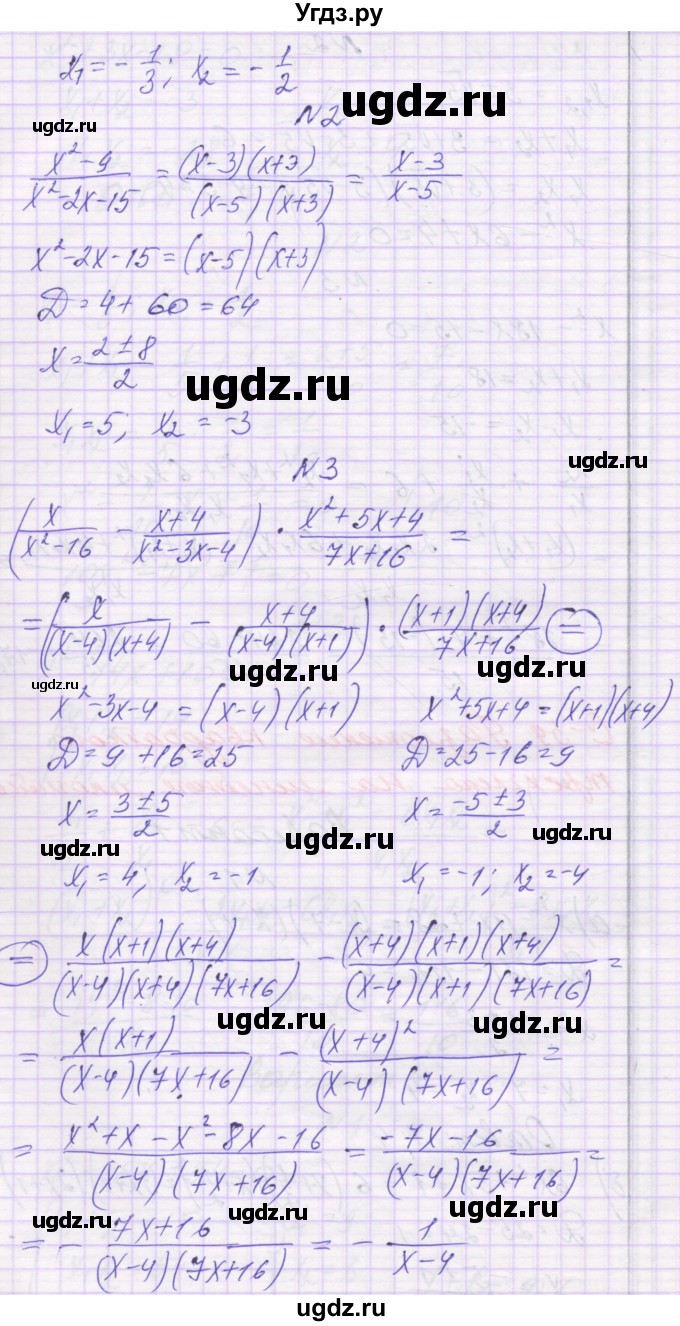 Угдз.ру
x₁ = -1/3; x₂ = -1/2
ugdz.ru
N2
ugdz.ru
(x²-9)/(x²-2x-15) = ((x-3)(x+3))/((x-5)(x+3)) = (x-3)/(x-5)
x²-2x-15 = (x-5)(x+3)
Д = 4 + 60 = 64
x = (2±8)/2
ugdz.ru
x₁ = 5; x₂ = -3
ugdz.ru
N3
(x/(x²-16) - (x+4)/(x²-3x-4)) · (x²+5x+4)/(7x+16) =
= (x/((x-4)(x+4)) - (x+4)/((x-4)(x+1))) · ((x+1)(x+4))/(7x+16) =
ugdz.ru ugdz.ru ugdz.ru
x²-3x-4 = (x-4)(x+1) x²+5x+4 = (x+1)(x+4)
Д = 9 + 16 = 25 Д = 25-16 = 9
x = (3±5)/2 x = (-5±3)/2
ugdz.ru ugdz.ru ugdz.ru
x₁ = 4; x₂ = -1 x₁ = -1; x₂ = -4
= (x(x+1)(x+4))/((x-4)(x+4)(7x+16)) - ((x+4)(x+1)(x+4))/((x-4)(x+1)(7x+16)) =
ugdz.ru ugdz.ru
= (x(x+1))/((x-4)(7x+16)) - (x+4)²/((x-4)(7x+16)) =
= (x²+x-x²-8x-16)/((x-4)(7x+16)) = (-7x-16)/((x-4)(7x+16)) =
ugdz.ru ugdz.ru ugdz.ru
= -(7x+16)/((x-4)(7x+16)) = -1/(x-4)
ugdz.ru